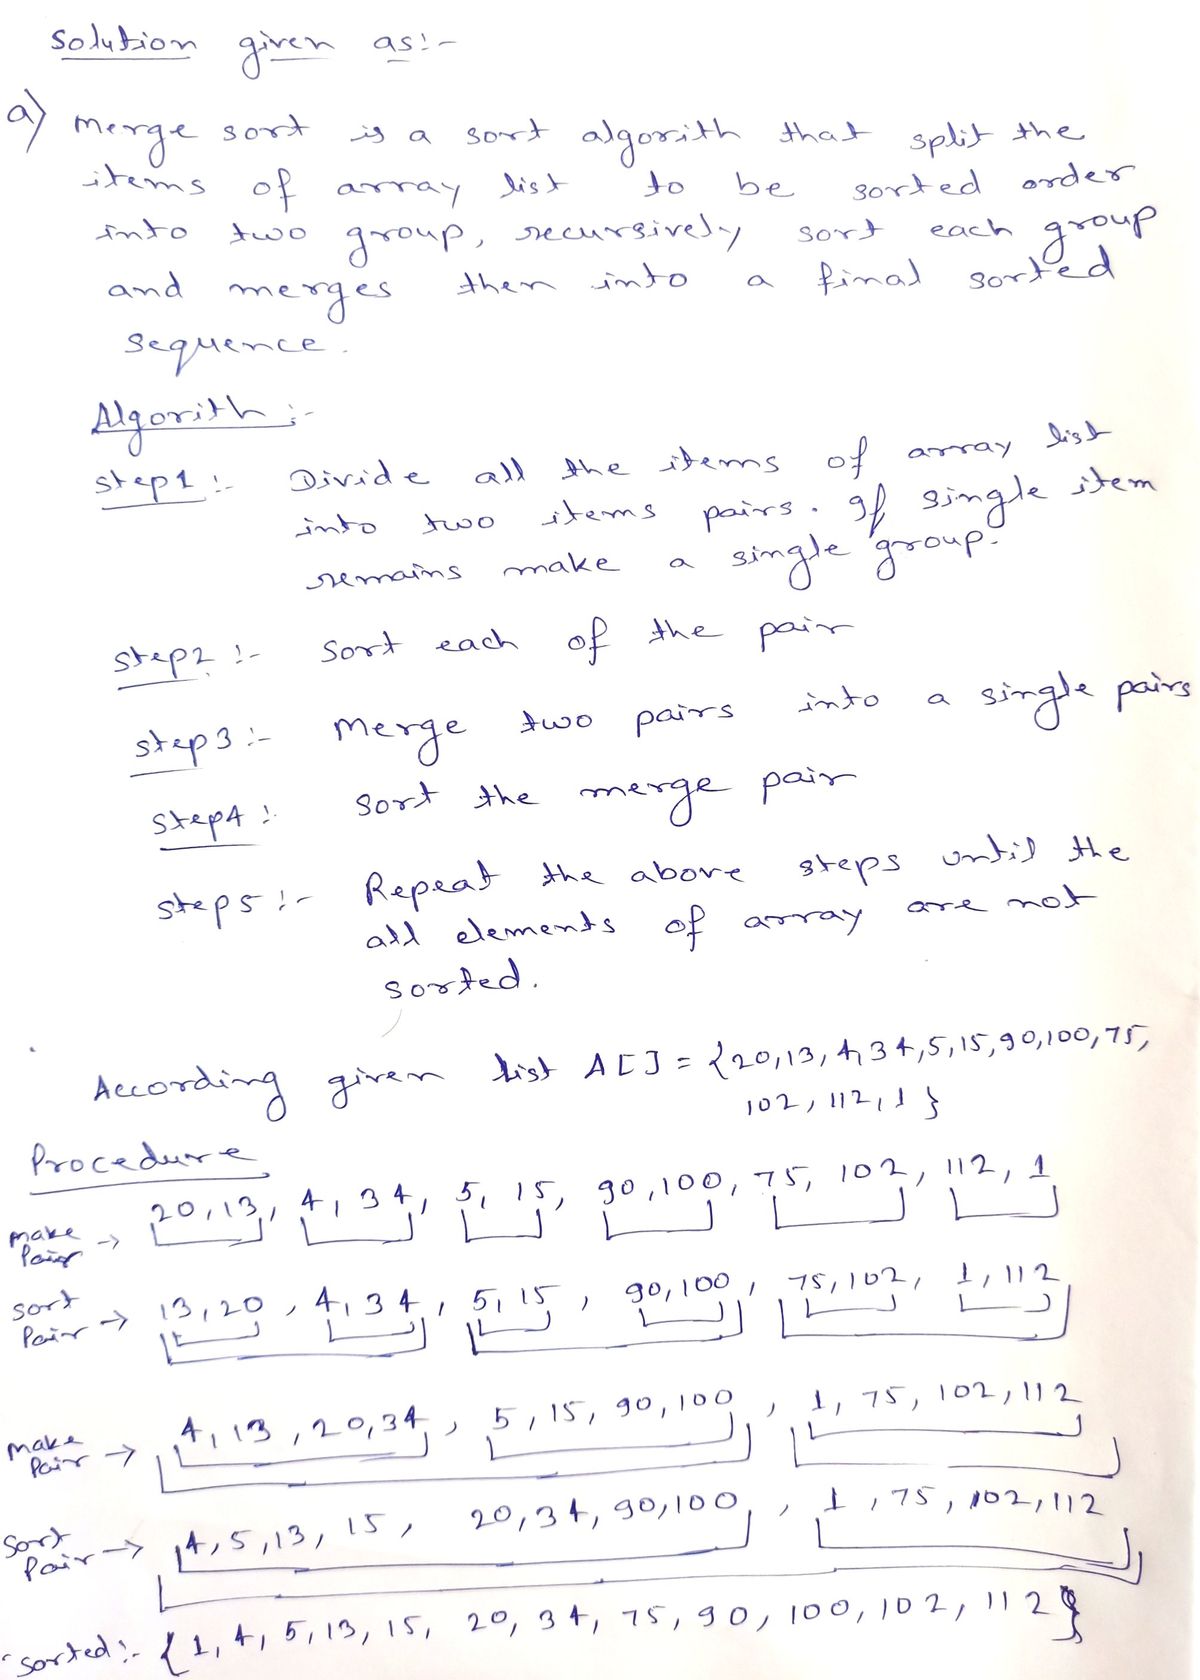 Solution given as:-
a) Merge sort is a sort algorith that split the
items of array list to be sorted order
into two group, recursively sort each group
and merges then into a final sorted
sequence.
Algorith:-
step1:- Divide all the items of array list
into two items pairs. If single item
remains make a single group.
step2:- Sort each of the pair
step3:- Merge two pairs into a single pairs
step4:- Sort the merge pair
step5:- Repeat the above steps until the
all elements of array are not
sorted.
According given list A[] = {20,13,4,34,5,15,90,100,75,
102,112,1}
Procedure
Make Pair → 20,13, 4,34, 5,15, 90,100, 75,102, 112,1
Sort Pair → 13,20, 4,34, 5,15, 90,100, 75,102, 1,112
Make Pair → 4,13,20,34, 5,15,90,100, 1,75,102,112
Sort Pair → 4,5,13,15, 20,34,90,100, 1,75,102,112
Sorted:- {1,4,5,13,15,20,34,75,90,100,102,112}